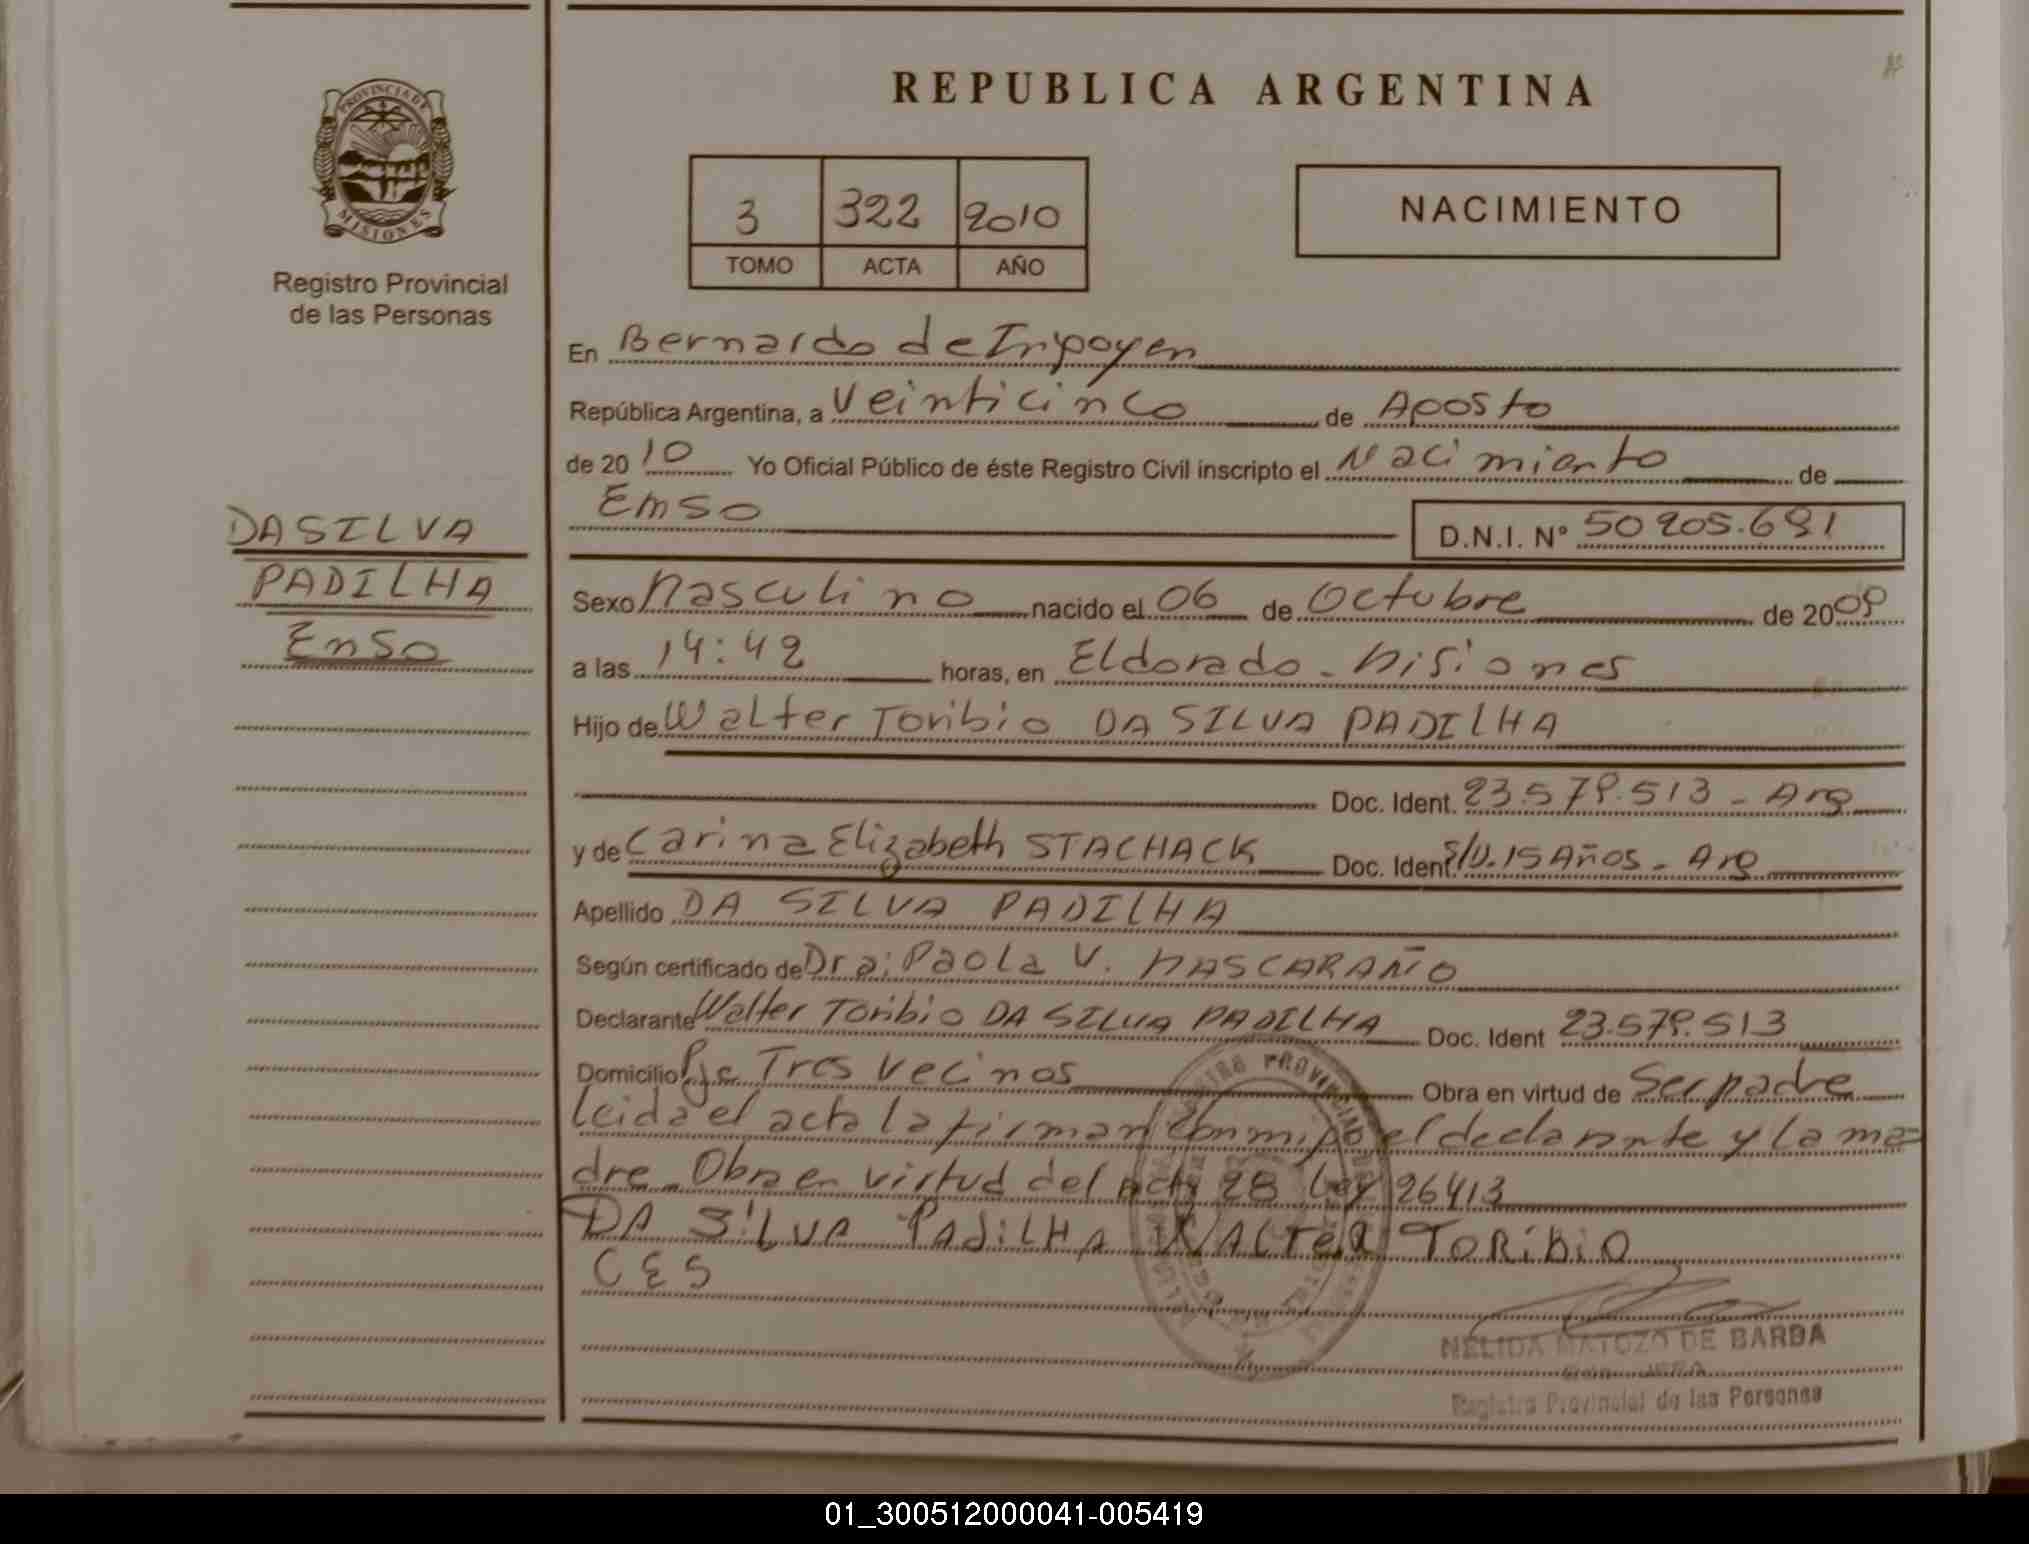 REPUBLICA ARGENTINA
PROVINCIA DE
MISIONES
Registro Provincial
de las Personas
3 322 2010
TOMO ACTA AÑO
NACIMIENTO
En Bernardo de Irigoyen
República Argentina, a Veinticinco de Agosto
de 20 10 Yo Oficial Público de éste Registro Civil inscripto el Nacimiento de
Emso
D.N.I. Nº 50205.691
DA SILVA
PADILHA
Enso
Sexo Masculino nacido el 06 de Octubre de 20 09
a las 14:42 horas, en Eldorado - Misiones
Hijo de Walter Toribio DA SILVA PADILHA
Doc. Ident. 23.579.513 - Arg
y de Carina Elizabeth STACHACK Doc. Ident. S/D. 15 Años - Arg
Apellido DA SILVA PADILHA
Según certificado de Dra: Paola V. MASCARAÑO
Declarante Walter Toribio DA SILVA PADILHA Doc. Ident 23.579.513
Domicilio Pje Tres Vecinos Obra en virtud de Ser padre
leida el acta la firman conmigo el declarante y la ma-
dre. Obra en virtud del Art 28 Ley 26413
DA SiLVA PAdiLHA WALTER TORibiO
C E S
NELIDA MATOZO DE BARBA
Registro Provincial de las Personas
01_300512000041-005419